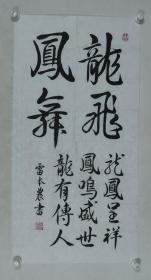 龍飛
鳳舞
龙鳳呈祥
鳳鳴盛世
龍有傳人
雷本農書